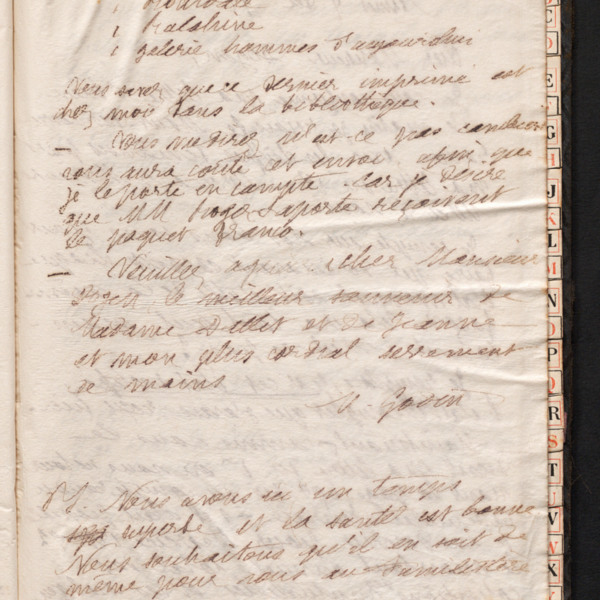 1 Palabine
1 galerie hommes d'aujourdhui
Vous savez que ce dernier imprimé est
chez moi dans la bibliothèque.
— Vous me direz n'est-ce pas combien
vous aura coûté cet envoi afin que
je le porte en compte. Car je désire
que MM Laporte reçoivent
le paquet franco.
— Veuillez agréer cher Monsieur
le meilleur souvenir de
Madame Dallet et de Jeanne
et mon plus cordial serrement
de mains
Godin
P.S. Nous avons eu un temps
superbe et la santé est bonne
Nous souhaitons qu'il en soit de
même pour vous au Familistère
C
D
E
F
G
H
J
K
L
M
N
O
P
Q
R
S
T
U
V
W
X
Y